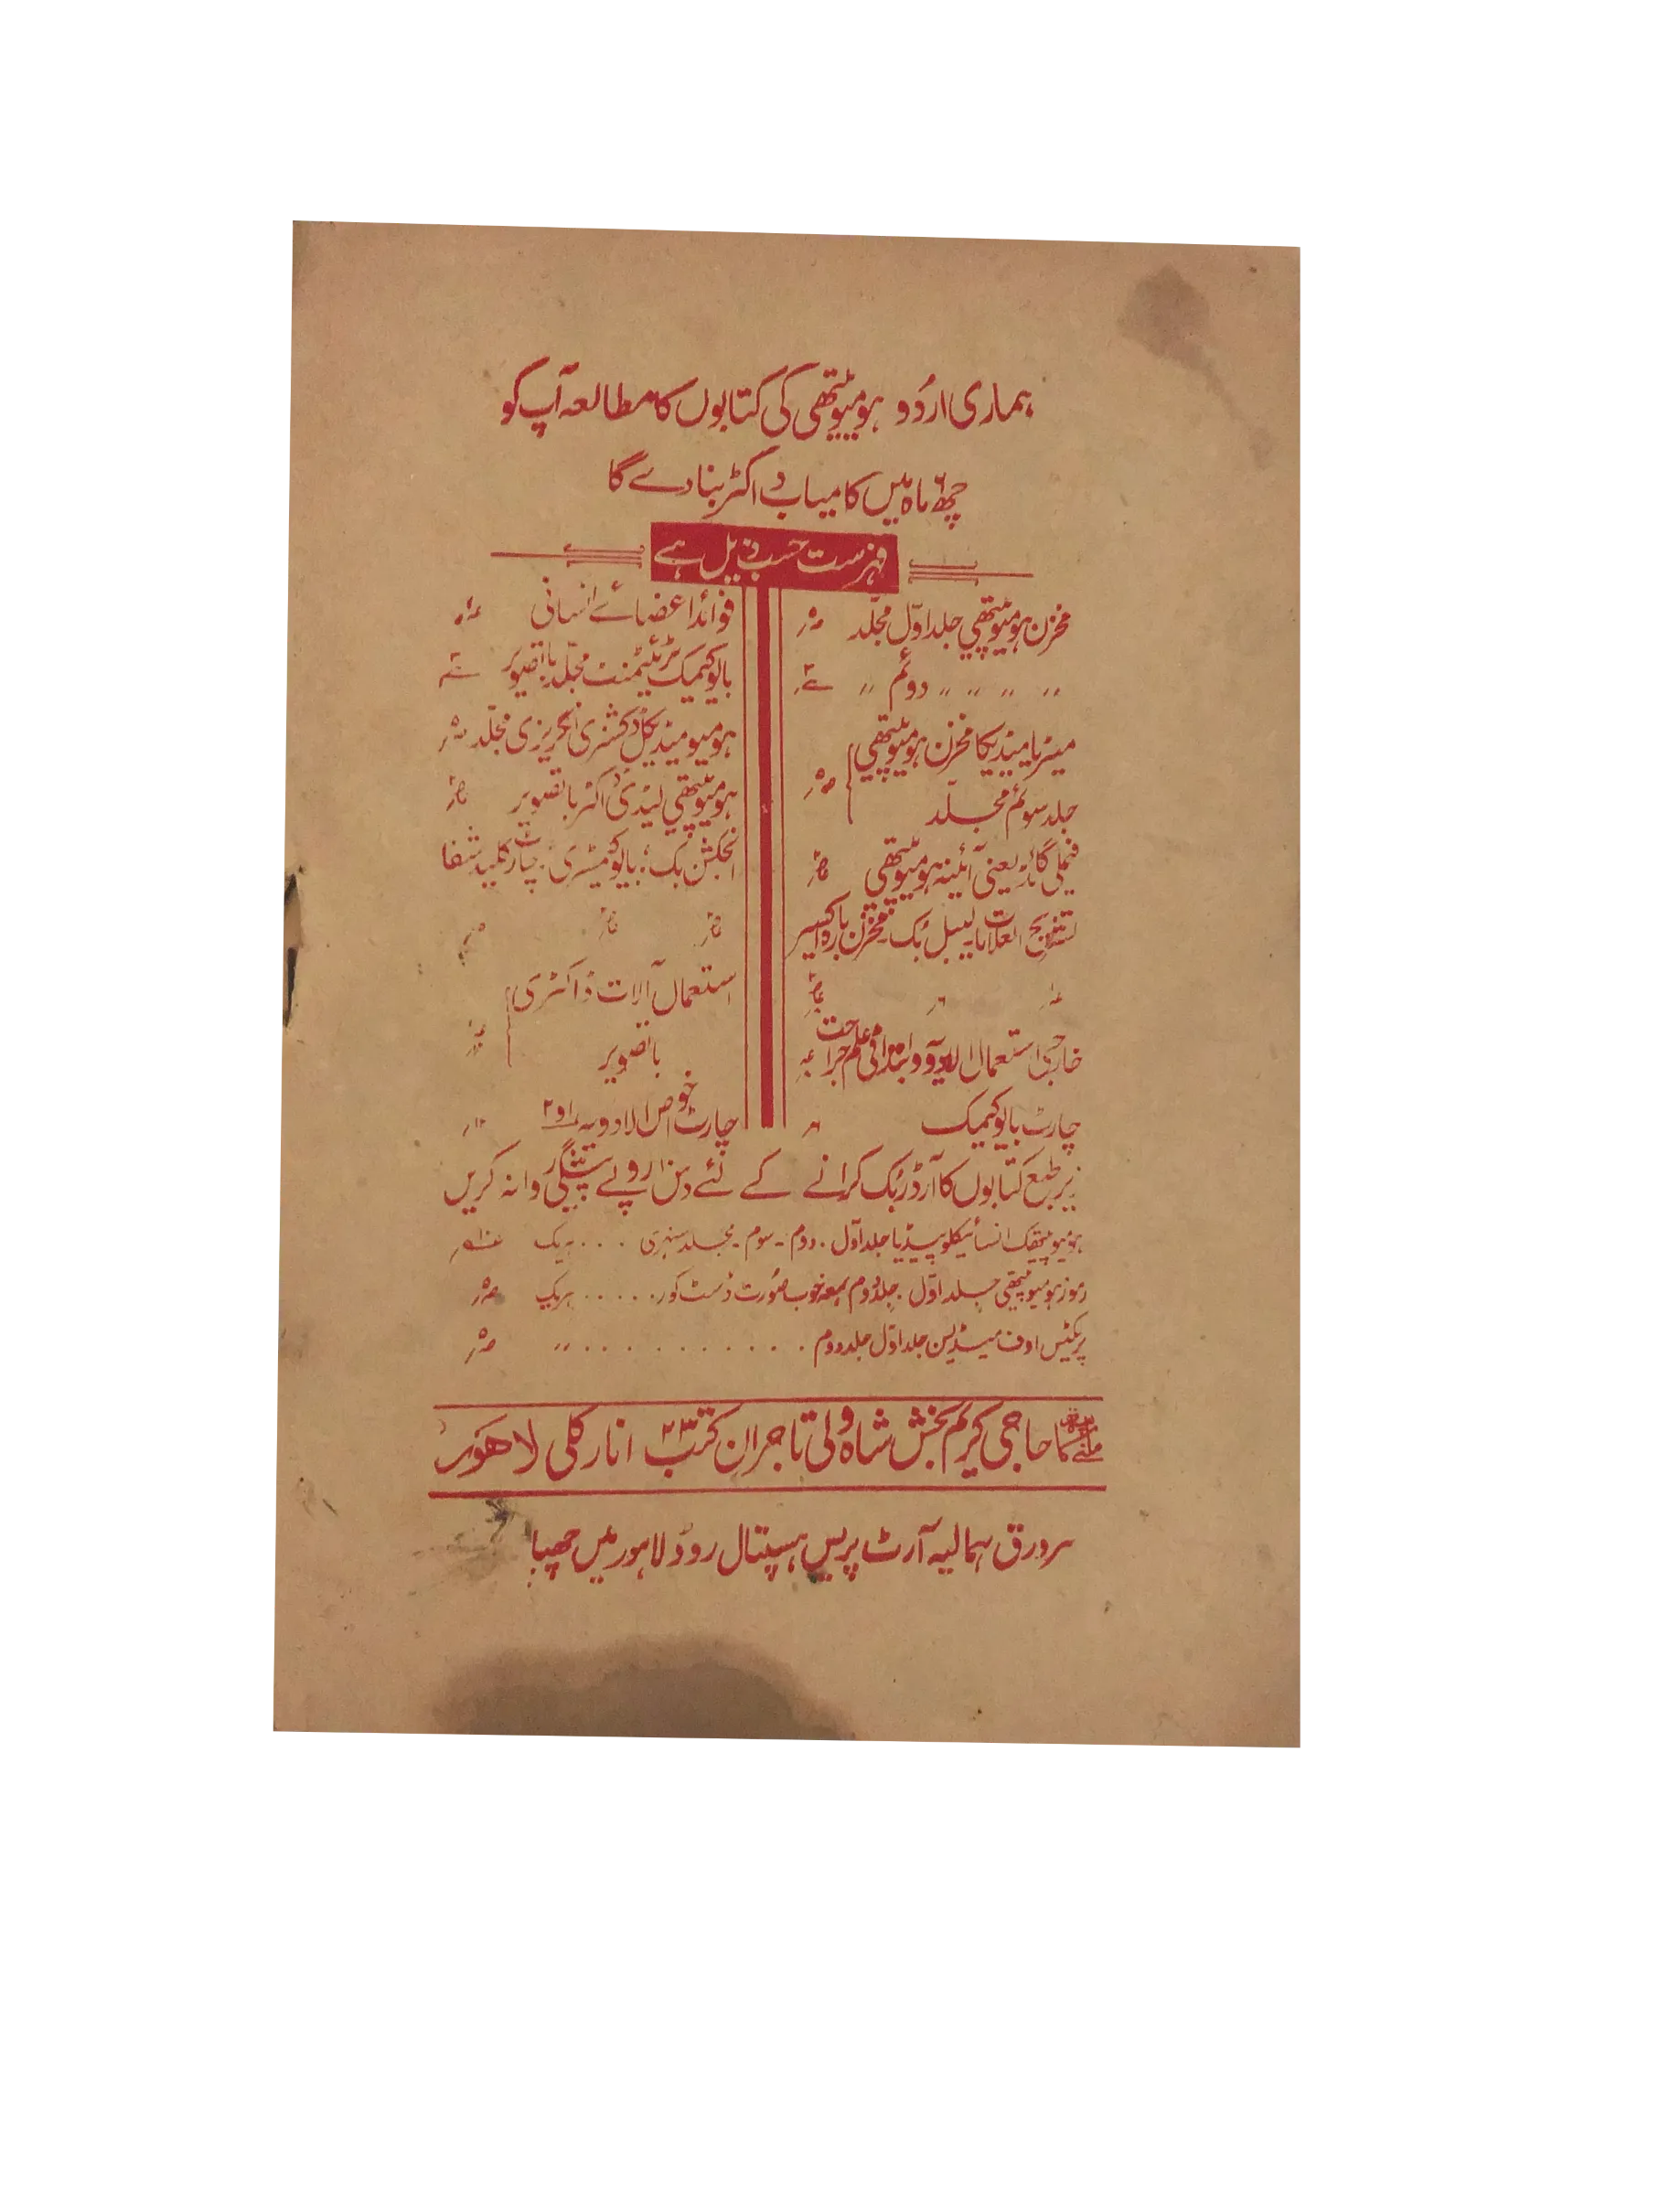 ہماری اردو ہومیوپیتھی کی کتابوں کا مطالعہ آپ کو
چھ ۶ ماہ میں کامیاب ڈاکٹر بنا دے گا
فہرست حسب ذیل ہے
مخزن ہومیوپیتھی جلد اوّل مجلّد
〃 〃 〃 〃 دوئم 〃
میٹریا میڈیکا مخزن ہومیوپیتھی
جلد سوئم مجلّد
فیملی گائڈ یعنی آئینہ ہومیوپیتھی
تشریح العلامات لیبل بُک - مخزن بارہ اکسیر
خارجی استعمال الادویہ و ابتدائی علم جراحت
چارٹ بایوکیمک
فوائد اعضائے انسانی
بایوکیمک ٹریٹمنٹ مجلّد باتصویر
ہومیو میڈیکل ڈکشنری انگریزی مجلّد
ہومیوپیتھی لیڈی ڈاکٹر باتصویر
انجکشن بک - بایوکیمسٹری - چارٹ کلید شفا
استعمال آلات ڈاکٹری
باتصویر
چارٹ خواص الادویہ ۱و۲ ۱۲؍
زیر طبع کتابوں کا آرڈر بُک کرانے کے لئے دس ۱۰ روپے پیشگی روانہ کریں
ہومیوپیتھک انسائیکلوپیڈیا جلد اوّل . دوم - سوم - مجلد سنہری . . . ہریک
رموز ہومیوپیتھی جلد اوّل . جلد دوم بمعہ خوب صورت ڈسٹ کور . . . . . ہریک
پریکٹس اوف میڈیسن جلد اوّل جلد دوم . . . . . . . . . . 〃
ملنے کا پتہ حاجی کریم بخش شاہ ولی تاجران کتب ۲۳ انارکلی لاہور
سرورق ہمالیہ آرٹ پریس ہسپتال روڈ لاہور میں چھپا